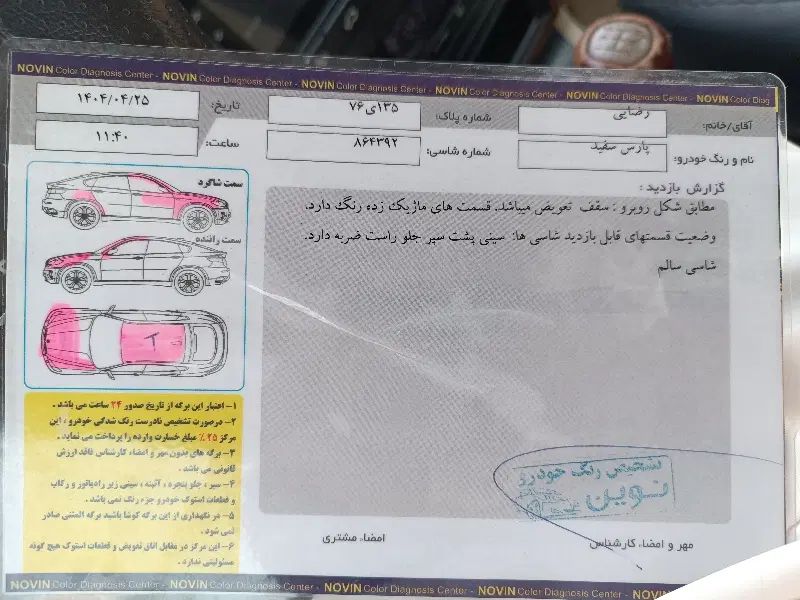 NOVIN Color Diagnosis Center - NOVIN Color Diagnosis Center - NOVIN Color Diagnosis Center - NOVIN Color Diagnosis Center - NOVIN Color Diagnosis Center - NOVIN Color Diag
آقای/خانم: رضایی
شماره پلاک: ۱۳۵ی۷۶
تاریخ: ۱۴۰۴/۰۴/۲۵
نام و رنگ خودرو: پارس سفید
شماره شاسی: ۸۶۴۳۹۲
ساعت: ۱۱:۴۰
گزارش بازدید :
مطابق شکل روبرو : سقف تعویض میباشد. قسمت های ماژیک زده رنگ دارد.
وضعیت قسمتهای قابل بازدید شاسی ها: سینی پشت سپر جلو راست ضربه دارد.
شاسی سالم
سمت شاگرد
سمت راننده
T
۱- اعتبار این برگه از تاریخ صدور ۲۴ ساعت می باشد .
۲- درصورت تشخیص نادرست رنگ شدگی خودرو، این
مرکز ۲۵٪ مبلغ خسارت وارده را پرداخت می نماید .
۳- برگه های بدون مهر و امضاء کارشناس فاقد ارزش
قانونی می باشد .
۴- سپر ، جلو پنجره ، آئینه ، سینی زیر رادیاتور و رکاب
و قطعات استوک خودرو جزء رنگ نمی باشد .
۵- در نگهداری از این برگه کوشا باشید برگه المثنی صادر
نمی شود .
۶- این مرکز در مقابل اتاق تعویض و قطعات استوک هیچ گونه
مسئولیتی ندارد .
تشخیص رنگ خودرو
نوین
مهر و امضاء کارشناس
امضاء مشتری
NOVIN Color Diagnosis Center - NOVIN Color Diagnosis Center - NOVIN Color Diagnosis Center - NOVIN Color Diagnosis Center - NOVIN